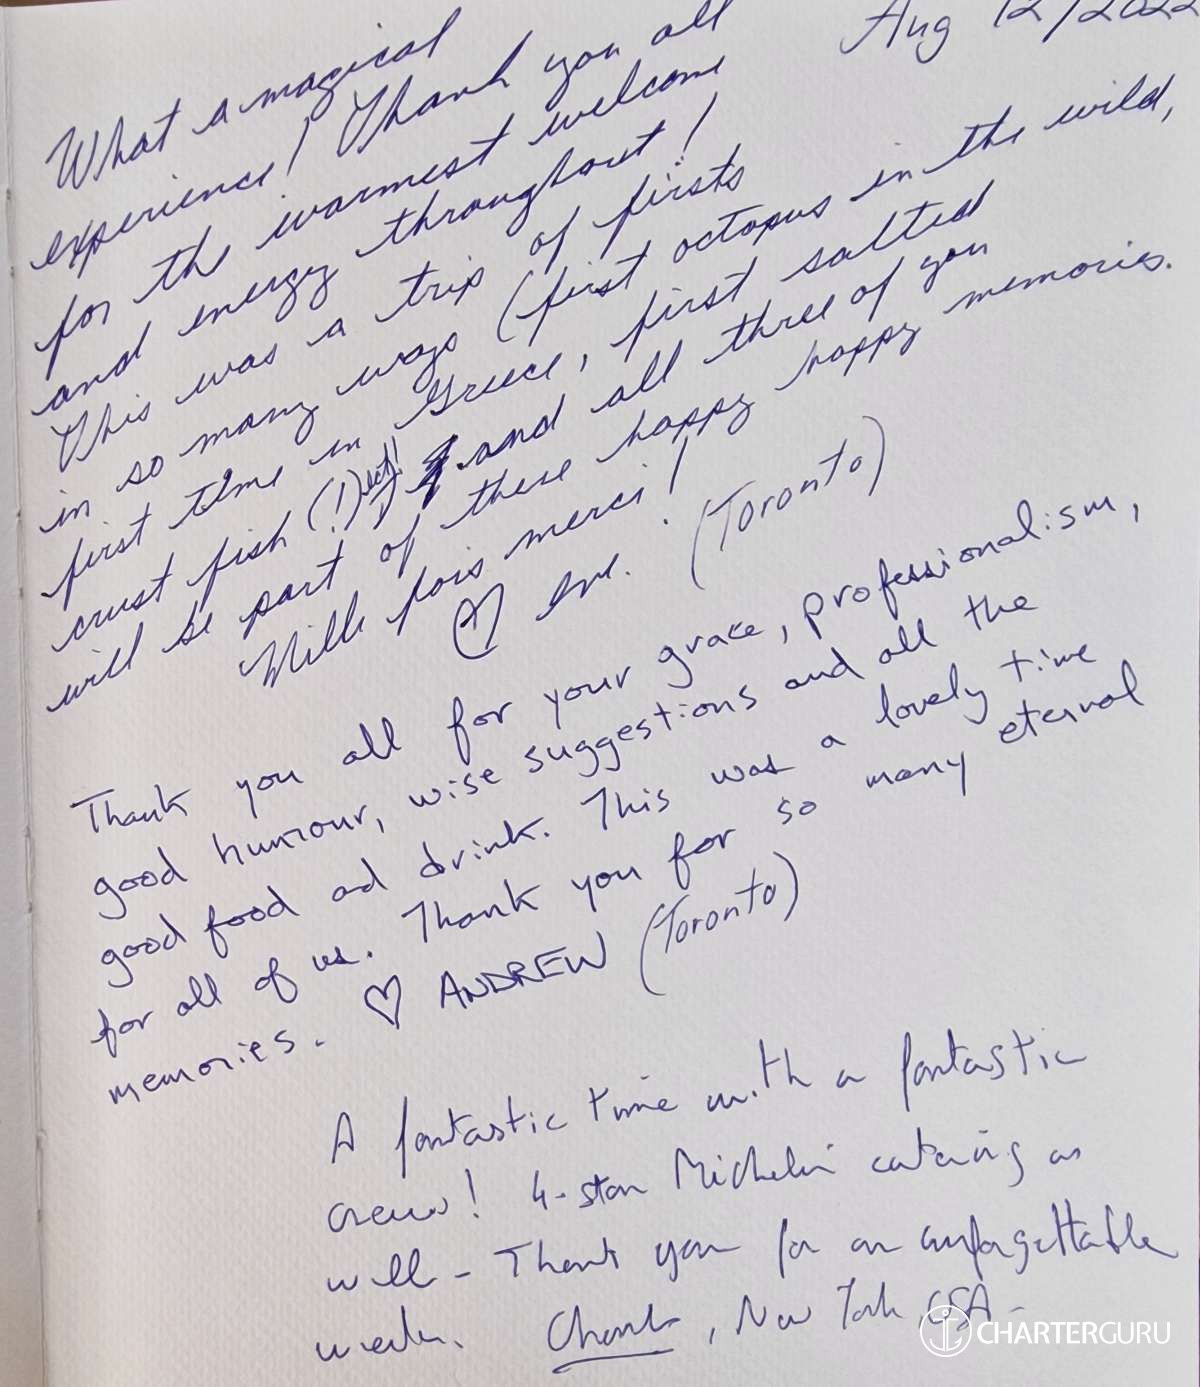 Aug 12/2022
What a magical
experience! Thank you all
for the warmest welcome
and energy throughout!
This was a trip of firsts
in so many ways (first octopus in the wild,
first time in Greece, first salted
crust fish (!) ect!) and all three of you
will be part of these happy happy memories.
Mille fois merci!
♡ Eve. (Toronto)
Thank you all for your grace, professionalism,
good humour, wise suggestions and all the
good food and drink. This was a lovely time
for all of us. Thank you for so many eternal
memories. ♡ ANDREW (Toronto)
A fantastic time with a fantastic
crew! 4-star Michelin catering as
well - Thank you for an unforgettable
week. , New York, USA -
CHARTERGURU